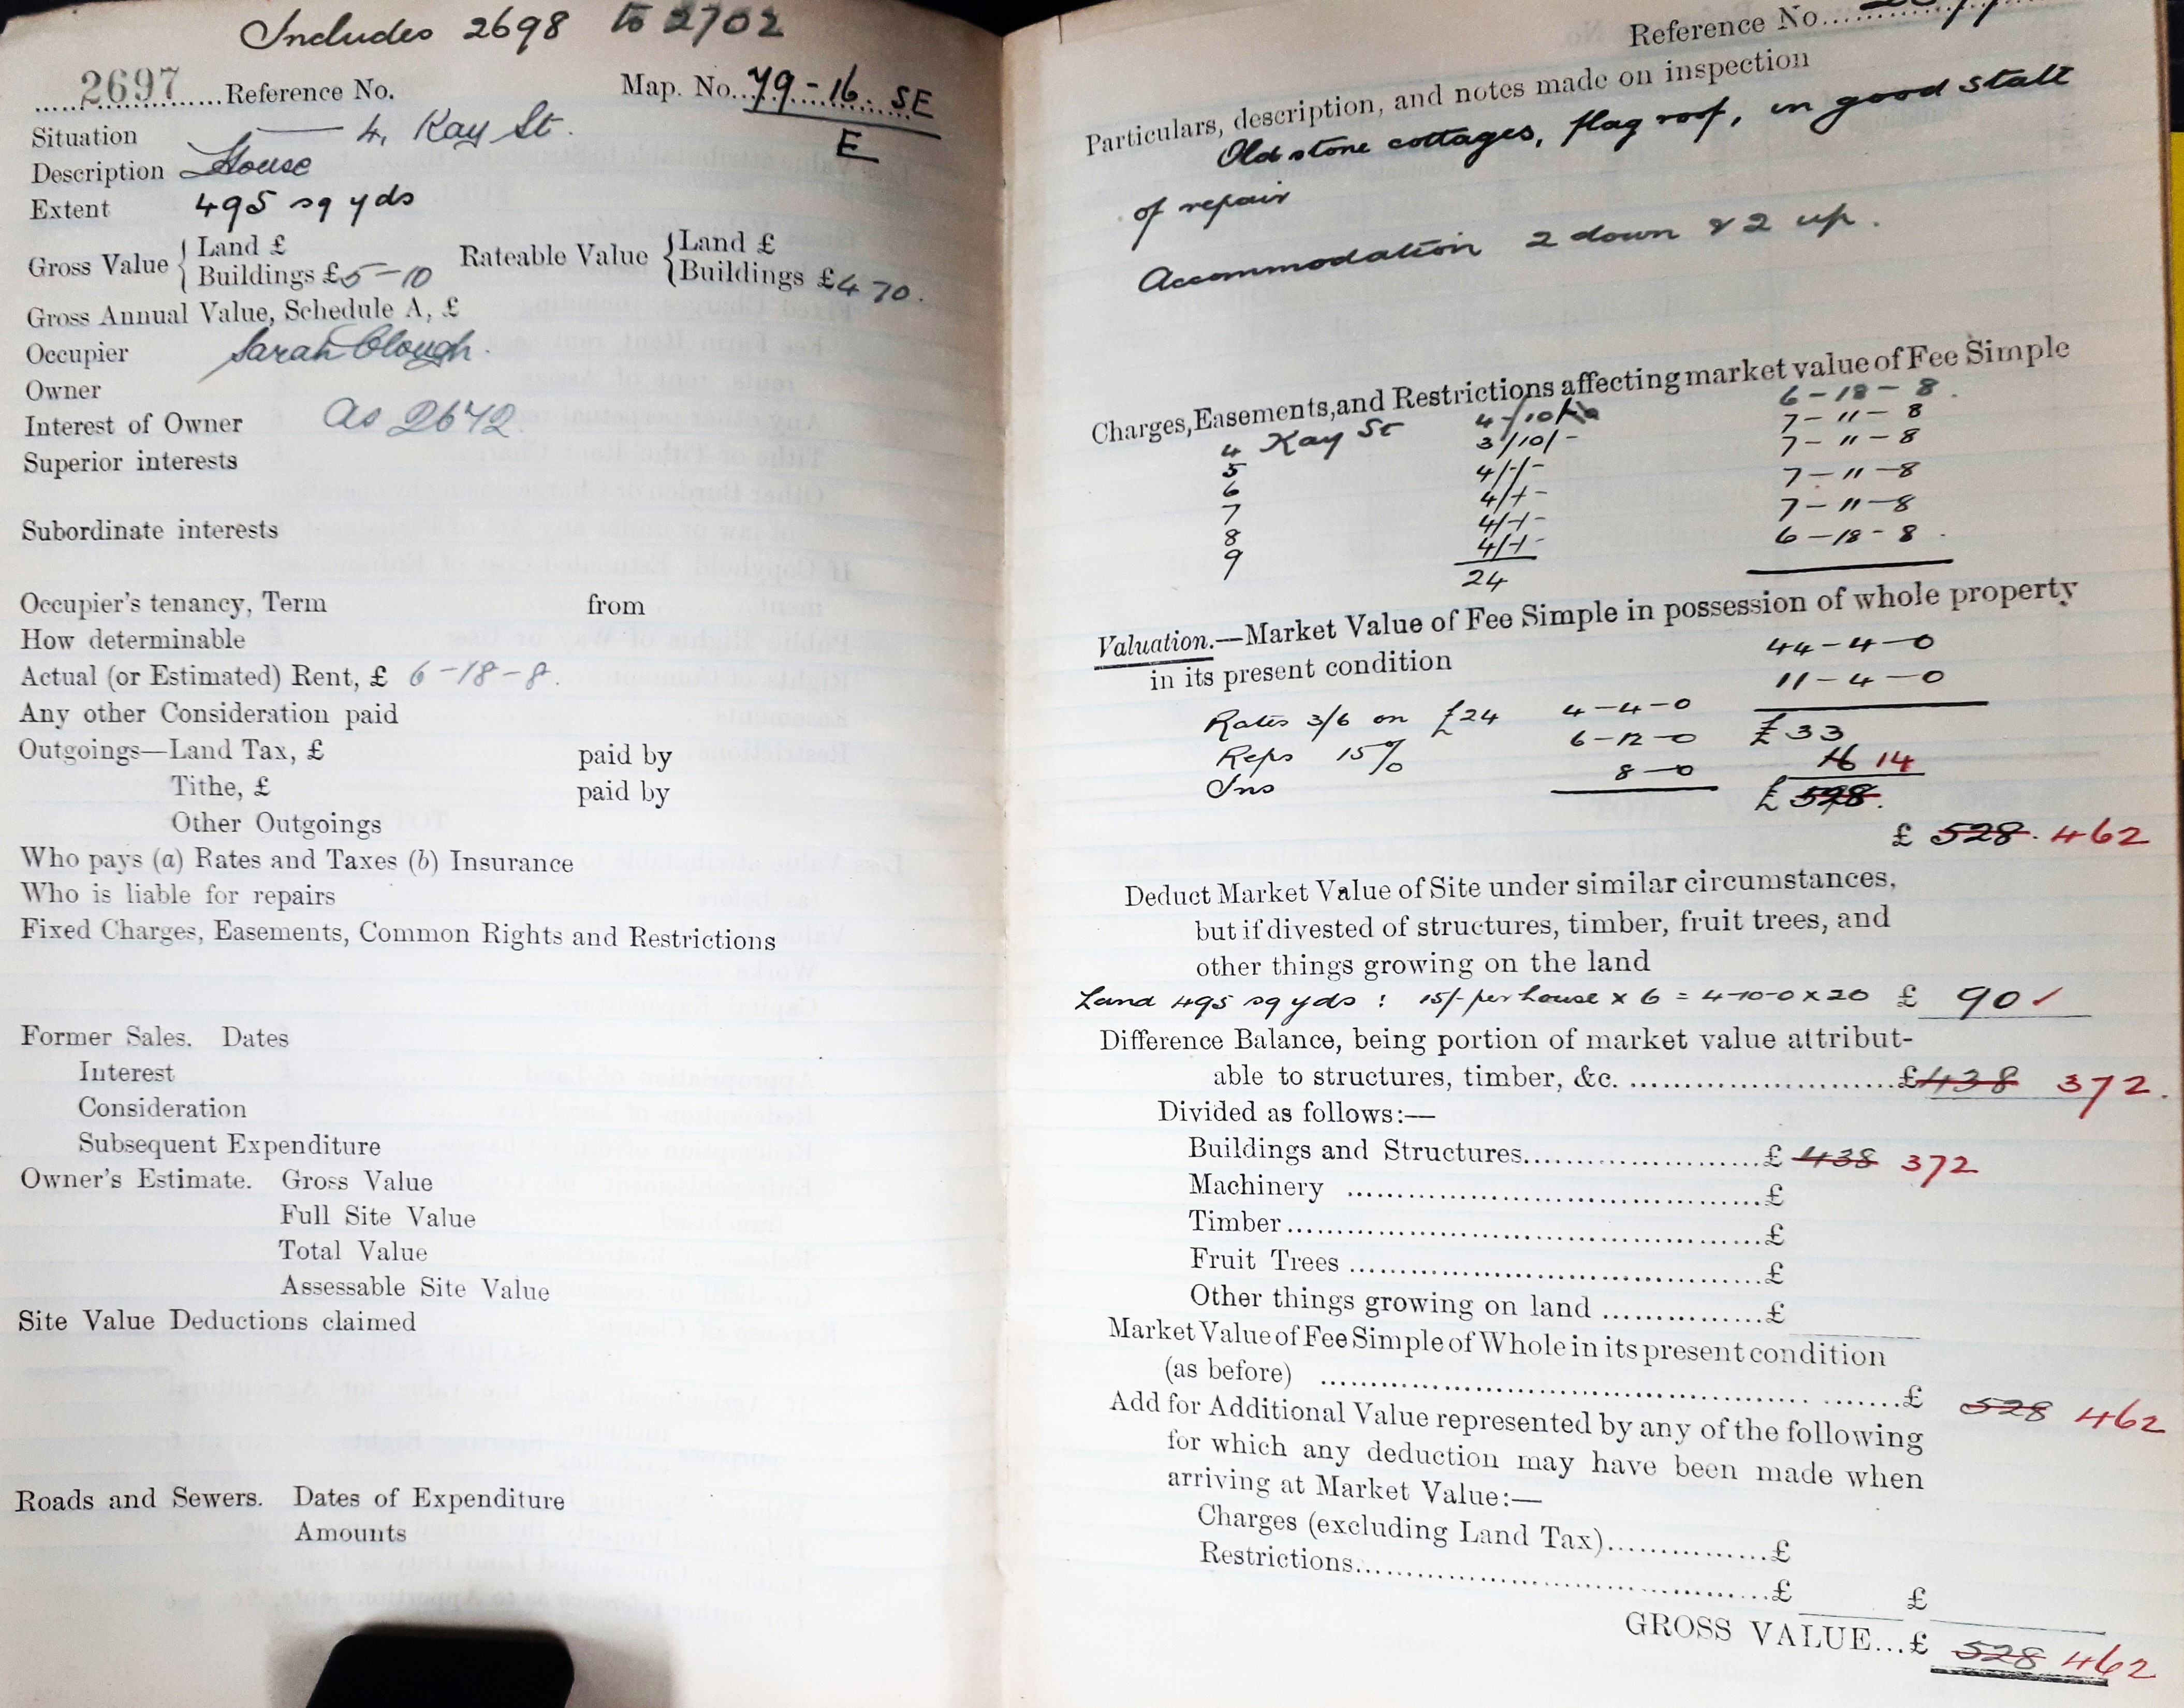 Includes 2698 to 2702
2697 Reference No. Map. No. 79-16. SE
E
Situation 4, Kay St.
Description House
Extent 495 sq yds
Gross Value { Land £
Buildings £5-10
Rateable Value { Land £
Buildings £4 70.
Gross Annual Value, Schedule A, £
Occupier Sarah Clough.
Owner
Interest of Owner as 2672
Superior interests
Subordinate interests
Occupier's tenancy, Term from
How determinable
Actual (or Estimated) Rent, £ 6-18-8.
Any other Consideration paid
Outgoings—Land Tax, £ paid by
Tithe, £ paid by
Other Outgoings
Who pays (a) Rates and Taxes (b) Insurance
Who is liable for repairs
Fixed Charges, Easements, Common Rights and Restrictions
Former Sales. Dates
Interest
Consideration
Subsequent Expenditure
Owner's Estimate. Gross Value
Full Site Value
Total Value
Assessable Site Value
Site Value Deductions claimed
Roads and Sewers. Dates of Expenditure
Amounts
Reference No.
Particulars, description, and notes made on inspection
Old stone cottages, flag roof, in good state
of repair
Accommodation 2 down & 2 up.
Charges, Easements, and Restrictions affecting market value of Fee Simple
4 Kay St 4/10/- 6-18-8.
5 3/10/- 7-11-8
6 4/-/- 7-11-8
7 4/-/- 7-11-8
8 4/-/- 7-11-8
9 4/-/- 6-18-8.
24
Valuation.—Market Value of Fee Simple in possession of whole property
in its present condition 44-4-0
11-4-0
Rates 3/6 on £24 4-4-0
Reps 15% 6-12-0 £33
Ins 8-0 16 14
£ 528.
£ 528. 462
Deduct Market Value of Site under similar circumstances,
but if divested of structures, timber, fruit trees, and
other things growing on the land
Land 495 sq yds : 15/- per house x 6 = 4-10-0 x 20 £ 90 ✓
Difference Balance, being portion of market value attribut-
able to structures, timber, &c. £ 438 372.
Divided as follows:—
Buildings and Structures £ 438 372
Machinery £
Timber £
Fruit Trees £
Other things growing on land £
Market Value of Fee Simple of Whole in its present condition
(as before) £ 528 462
Add for Additional Value represented by any of the following
for which any deduction may have been made when
arriving at Market Value:—
Charges (excluding Land Tax) £
Restrictions £ £
GROSS VALUE...£ 528 462